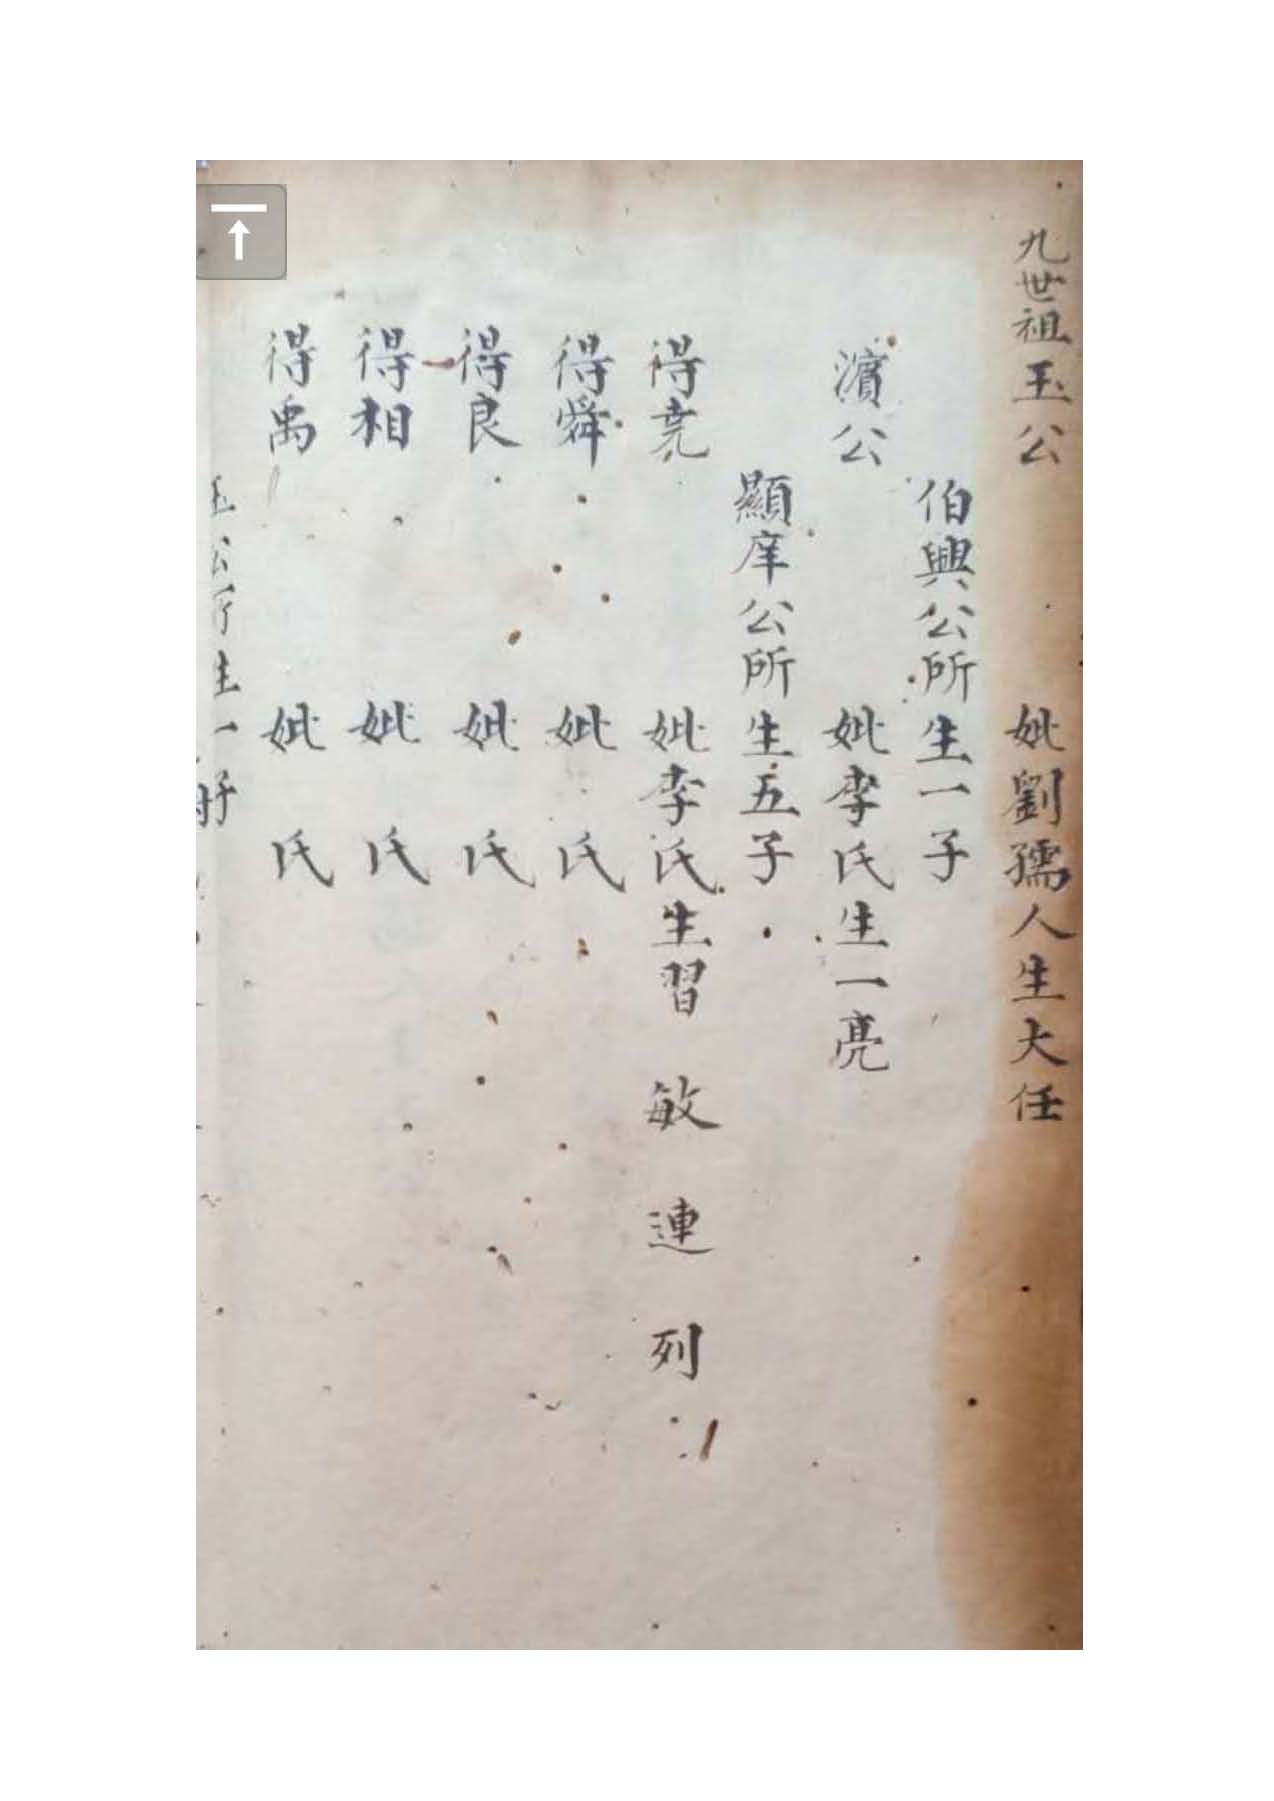 九世祖玉公 妣劉孺人生大任
伯興公所生一子
濵公 妣李氏生一亮
顯庠公所生五子
得堯 妣李氏生習 敏 連 列
得舜 妣 氏
得良 妣 氏
得相 妣 氏
得禹 妣 氏
玉公所生一子